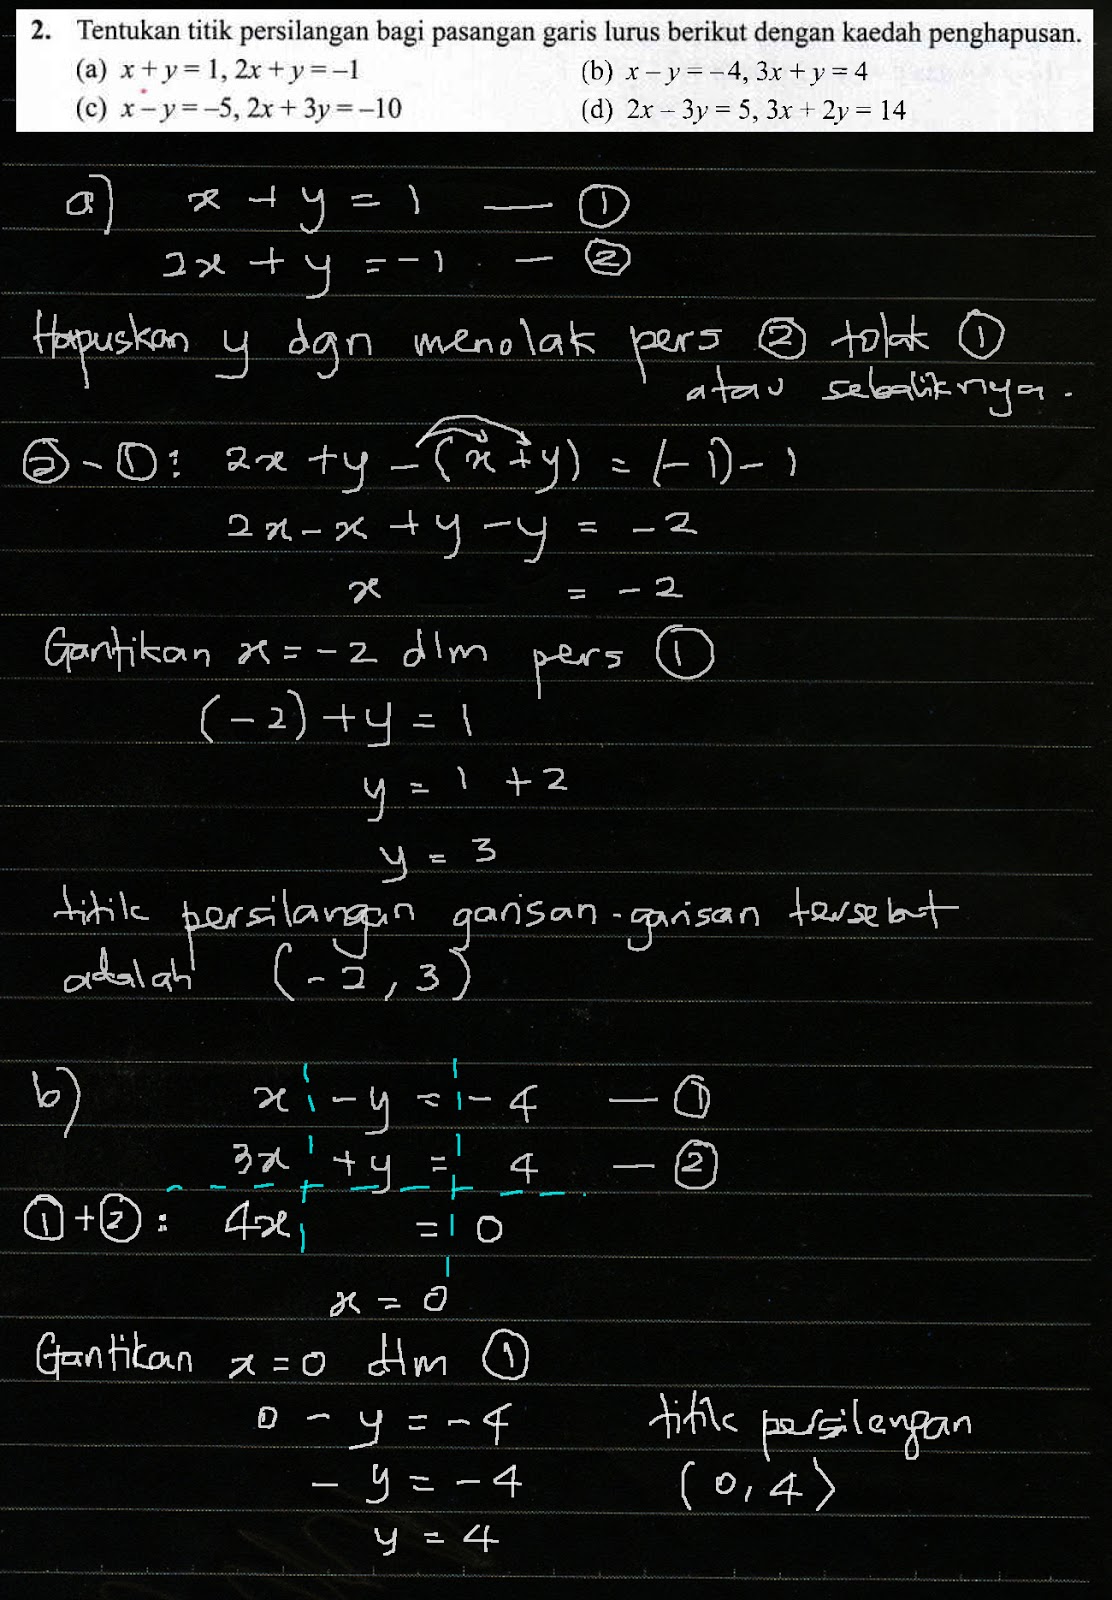 2. Tentukan titik persilangan bagi pasangan garis lurus berikut dengan kaedah penghapusan.
(a) x + y = 1, 2x + y = –1 (b) x – y = –4, 3x + y = 4
(c) x – y = –5, 2x + 3y = –10 (d) 2x – 3y = 5, 3x + 2y = 14
a) x + y = 1 — ①
2x + y = -1 — ②
Hapuskan y dgn menolak pers ② tolak ①
atau sebaliknya.
② - ①: 2x + y - (x + y) = (-1) - 1
2x - x + y - y = -2
x = -2
Gantikan x = -2 dlm pers ①
(-2) + y = 1
y = 1 + 2
y = 3
titik persilangan garisan-garisan tersebut
adalah (-2, 3)
b) x - y = -4 — ①
3x + y = 4 — ②
① + ②: 4x = 0
x = 0
Gantikan x = 0 dlm ①
0 - y = -4 titik persilangan
- y = -4 (0, 4)
y = 4